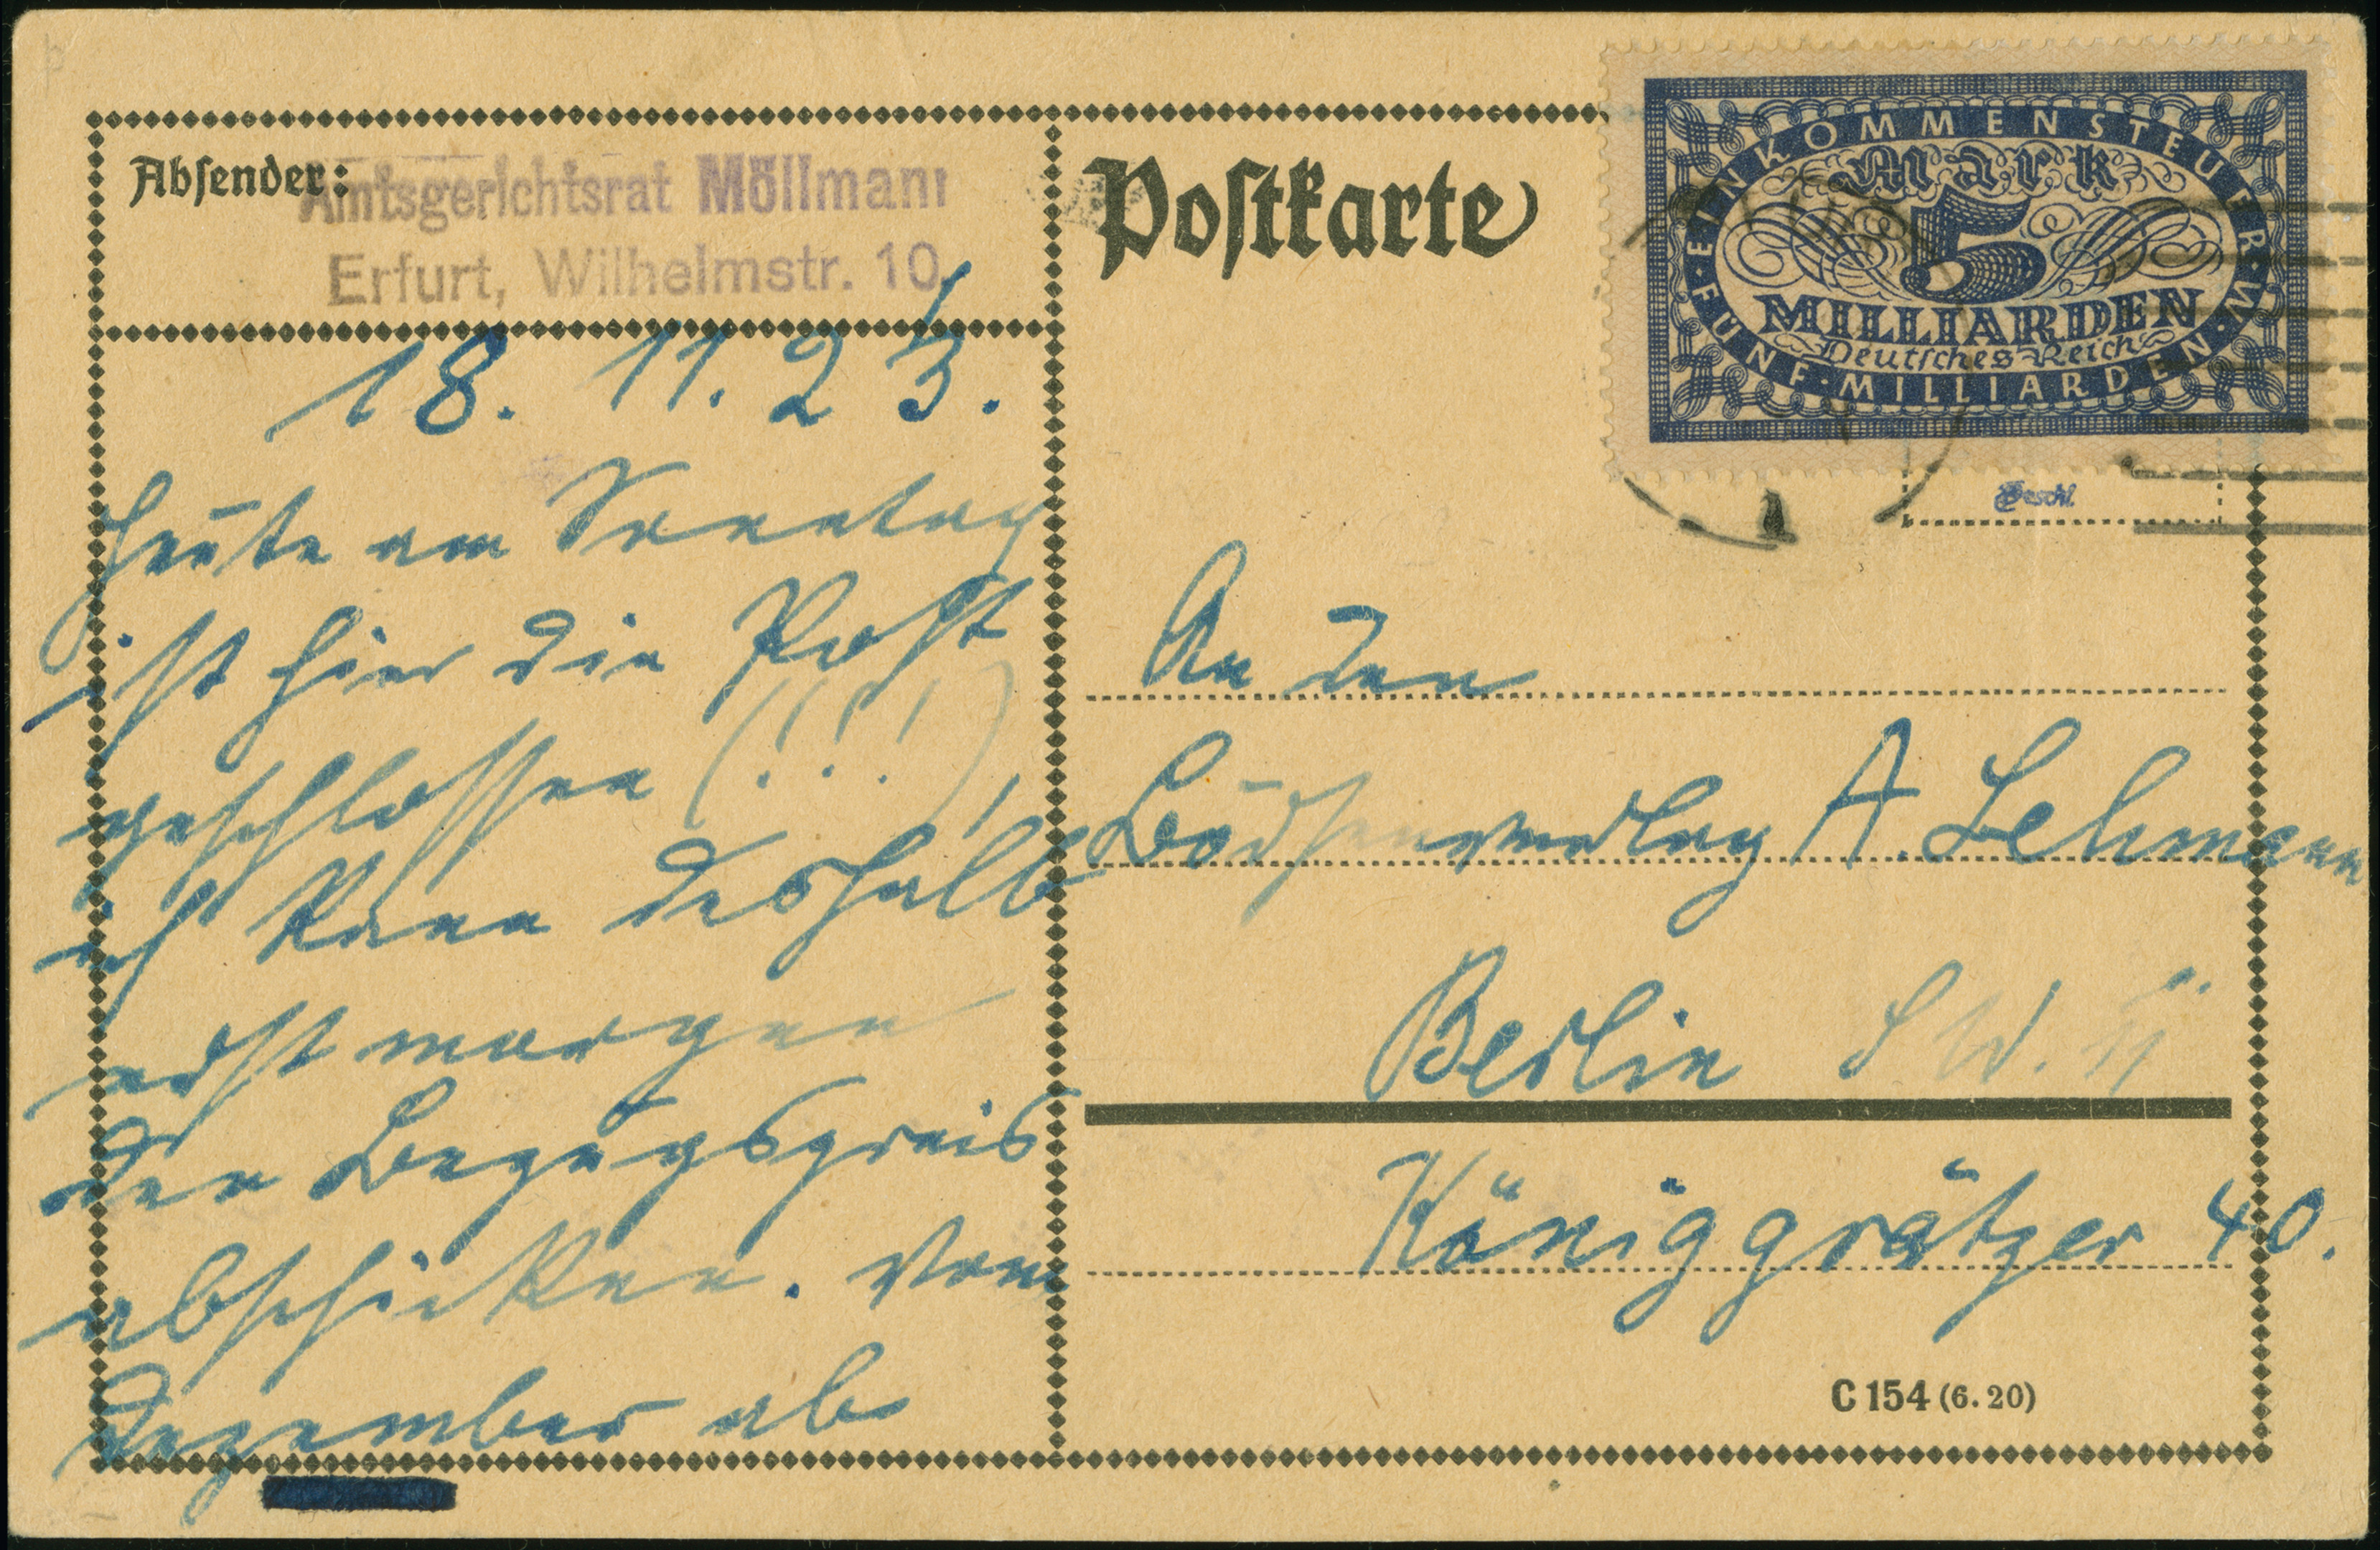 Absender:
Amtsgerichtsrat Möllmann
Erfurt, Wilhelmstr. 10
18. 11. 23.
Heute am Sonntag
ist hier die Post
geschlossen (!!!),
ich kann deshalb
erst morgen
den Bezugspreis
abschicken. Vom
Dezember ab
Postkarte
EINKOMMENSTEUER · W ·
Mark
5
MILLIARDEN
Deutsches Reich
FÜNF · MILLIARDEN
1
An den
Börsenverlag A. Lehmann
Berlin SW. 11
Königgrätzer 40.
C 154 (6. 20)